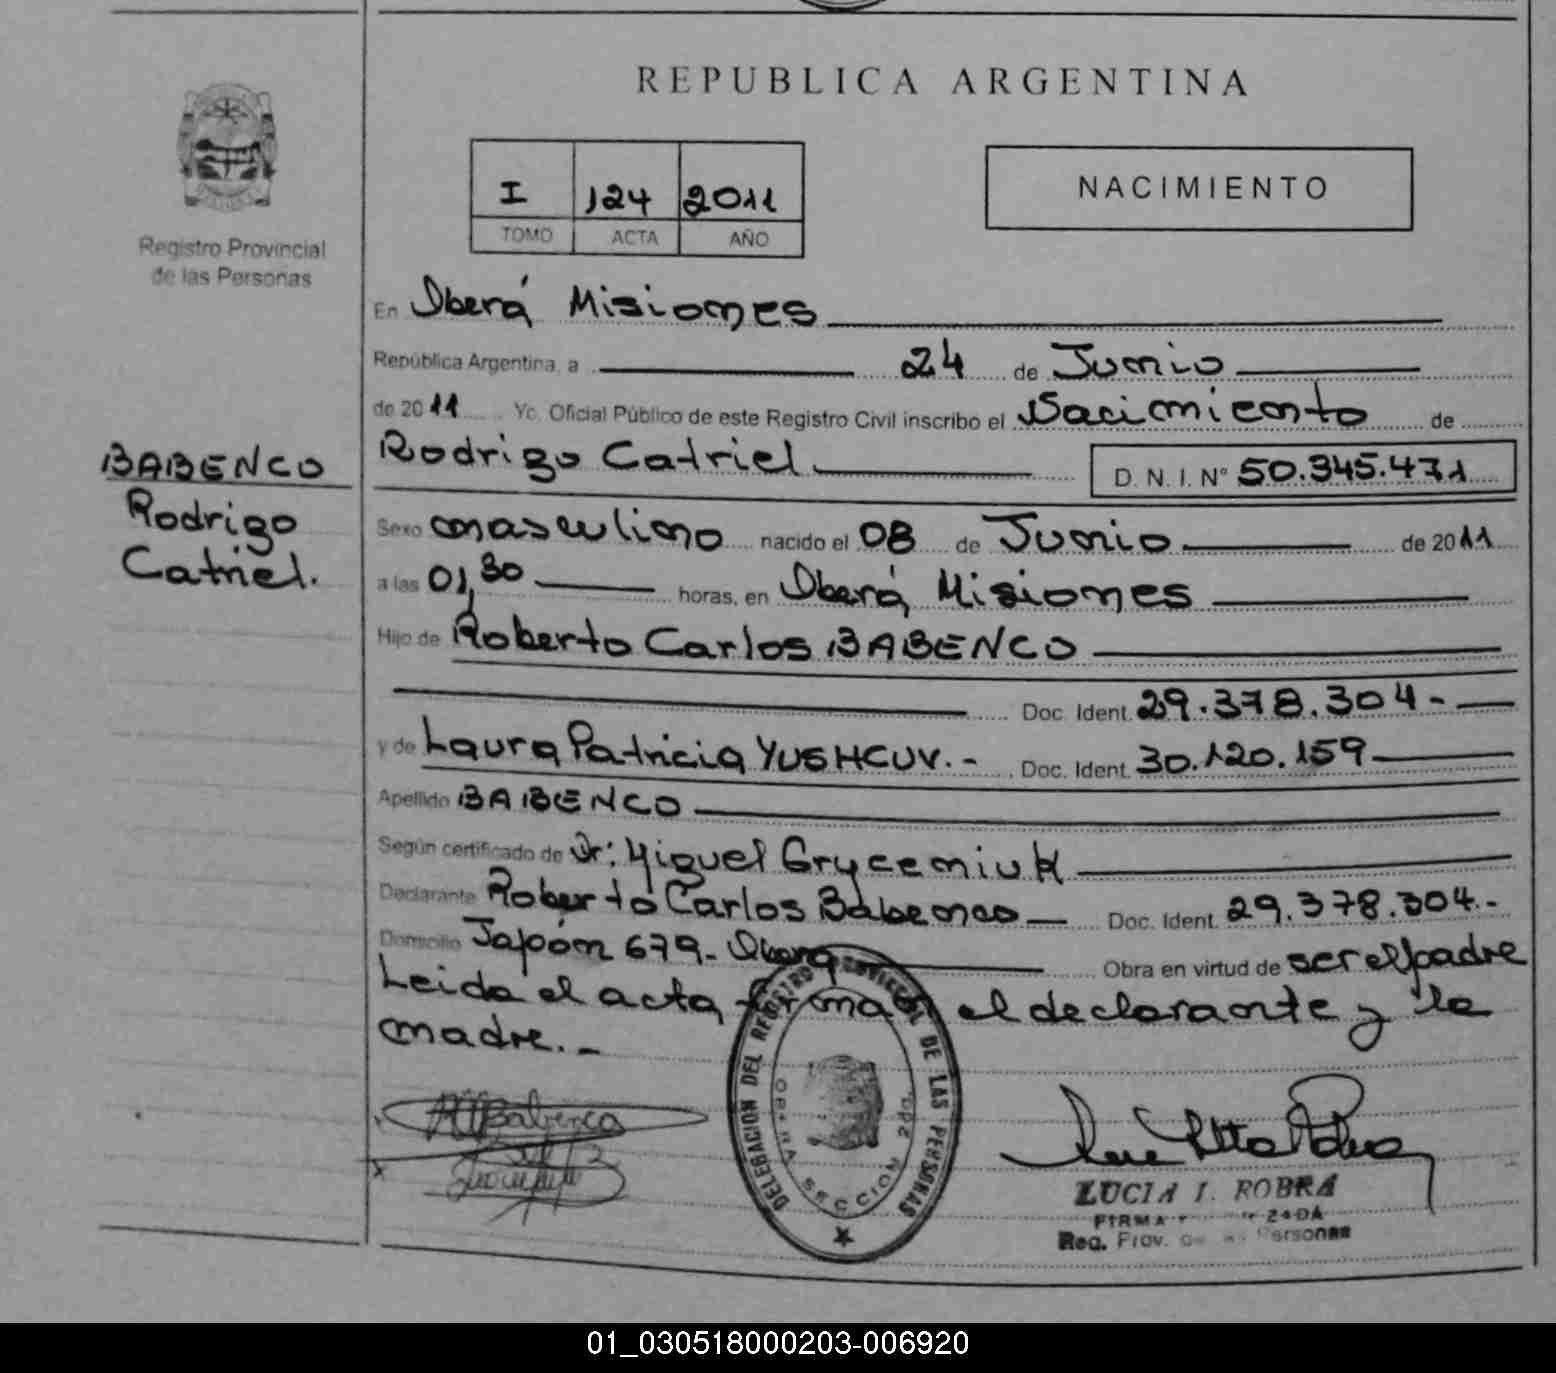 REPUBLICA ARGENTINA
I 124 2011
TOMO ACTA AÑO
NACIMIENTO
Registro Provincial
de las Personas
En Oberá Misiones
República Argentina, a 24 de Junio
de 2011 Yo, Oficial Público de este Registro Civil inscribo el Nacimiento de
Rodrigo Catriel D. N. I. N° 50.345.471
BABENCO
Rodrigo
Catriel.
Sexo masculino nacido el 08 de Junio de 2011
a las 01,30 horas, en Oberá Misiones
Hijo de Roberto Carlos BABENCO
Doc. Ident. 29.378.304-
y de Laura Patricia YUSHCUV.- Doc. Ident. 30.120.159
Apellido BABENCO
Según certificado de Dr: Miguel Gryceniuk
Declarante Roberto Carlos Babenco Doc. Ident. 29.378.304.-
Domicilio Japón 679- Oberá Obra en virtud de ser el padre
Leida el acta firman el declarante y la
madre.-
DELEGACION DEL REGISTRO PROVINCIAL DE LAS PERSONAS
OBERA SECCION 2da.
LUCIA I. ROBRA
FIRMA
Reg. Prov. de las Personas
01_030518000203-006920